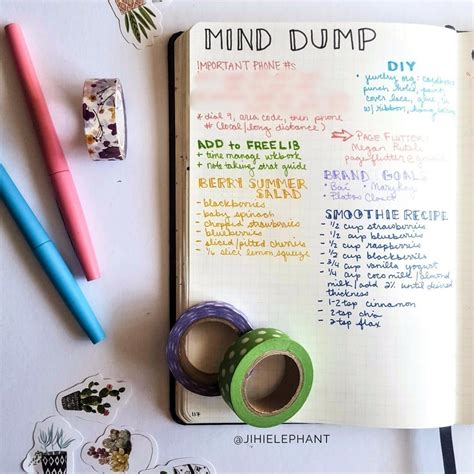 MIND DUMP
IMPORTANT PHONE #s
* dial 9, area code, then phone
# (local/long distance)
ADD to FREELIB
+ time manage wkbook
+ note taking strat guide
BERRY SUMMER
SALAD
- blackberries
- baby spinach
- chopped strawberries
- blueberries
- sliced/pitted cherries
- 1/2 slice lemon squeeze
DIY
- jewelry org: cardboard
punch holes, paint,
cover lace, glue,
w/ ribbon, hang
PAGE FLUTTER
Megan
pageflutter@
BRAND GOALS
- Bai - Marykay
- Platos Closet
SMOOTHIE RECIPE
- 1/2 cup strawberries
- 1/2 cup blueberries
- 1/2 cup raspberries
- 1/2 cup blackberries
- 3/4 cup vanilla yogurt
- 1/4 cup coco milk/almond
milk/add 2% until desired
thickness
- 1-2 tsp cinnamon
- 2 tsp chia
- 2 tsp flax
117
@JIHIELEPHANT